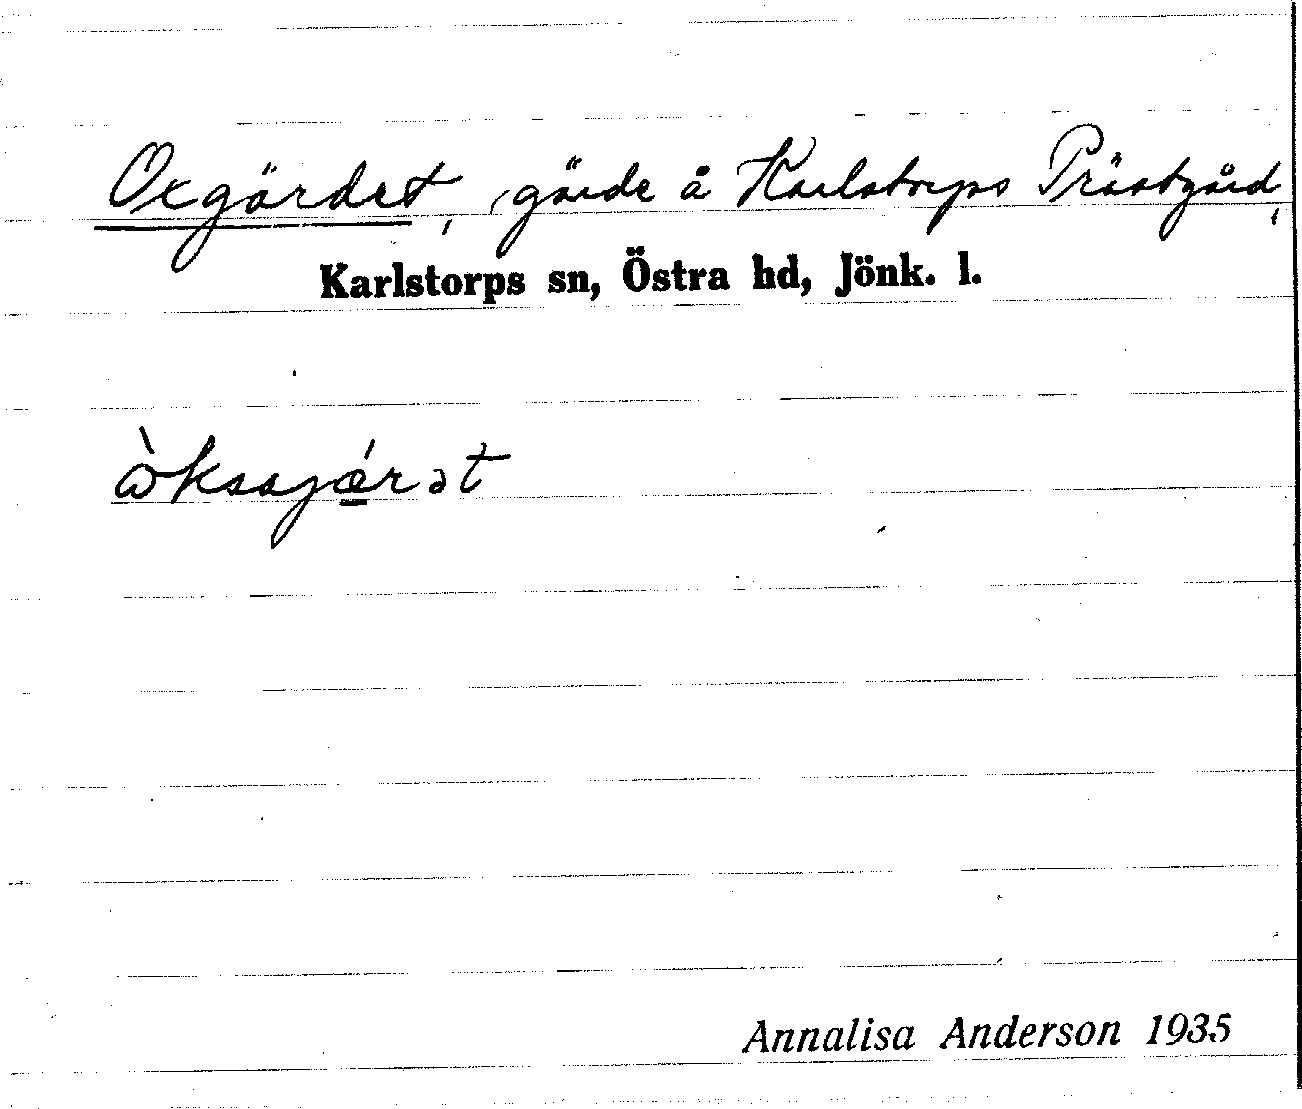 Oxgärdet, gärde å Karlstorps Prästgård,
Karlstorps sn, Östra hd, Jönk. l.
ò̵ksajǽ̲rət
Annalisa Anderson 1935